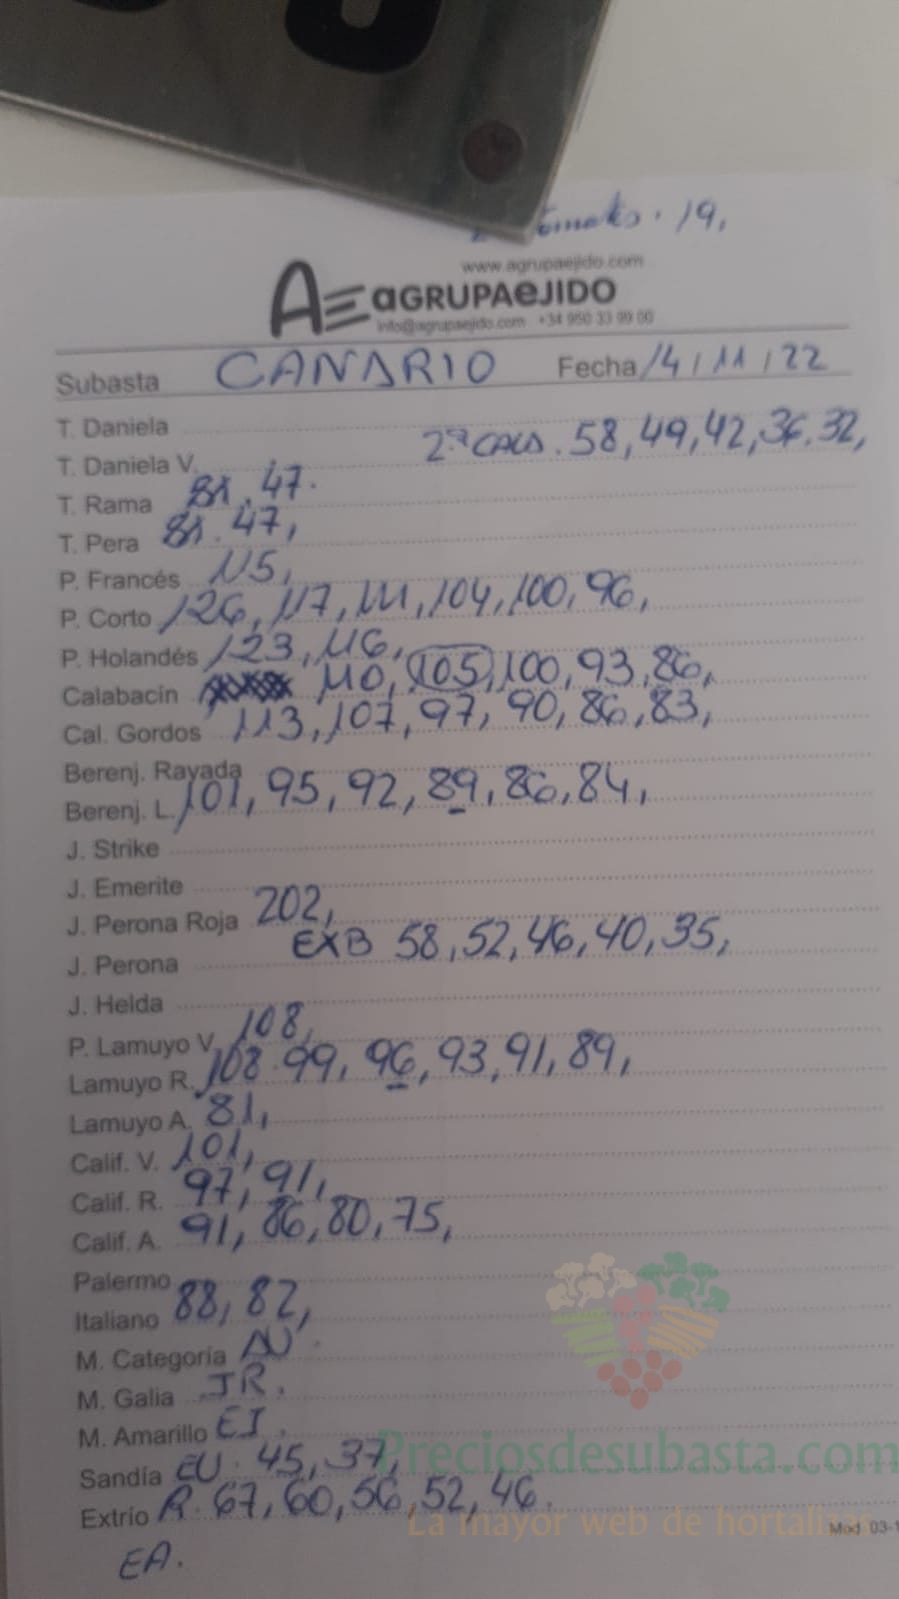 Tomate. 19,
www.agrupaejido.com
AE aGRUPAeJIDO
info@agrupaejido.com +34 950 33 99 00
Subasta CANARIO Fecha 14/11/22
T. Daniela
2ª CALD. 58, 49, 42, 36, 32,
T. Daniela V.
T. Rama 81, 47.
T. Pera 81. 47,
P. Francés 115,
P. Corto 126, 117, 111, 104, 100, 96,
P. Holandés 123, 116,
Calabacín 110, 105, 100, 93, 86,
Cal. Gordos 113, 107, 97, 90, 86, 83,
Berenj. Rayada
Berenj. L. 101, 95, 92, 89, 86, 84,
J. Strike
J. Emerite
J. Perona Roja 202,
EXB 58, 52, 46, 40, 35,
J. Perona
J. Helda
P. Lamuyo V. 108,
Lamuyo R. 108. 99, 96, 93, 91, 89,
Lamuyo A. 81,
Calif. V. 101,
Calif. R. 97, 91,
Calif. A. 91, 86, 80, 75,
Palermo
Italiano 88, 82,
M. Categoría AU.
M. Galia JR.
M. Amarillo EI.
Sandía EU. 45, 37,
Extrío R. 67, 60, 56, 52, 46.
EA.
Preciosdesubasta.com
La mayor web de hortaliza
Mod. 03-1